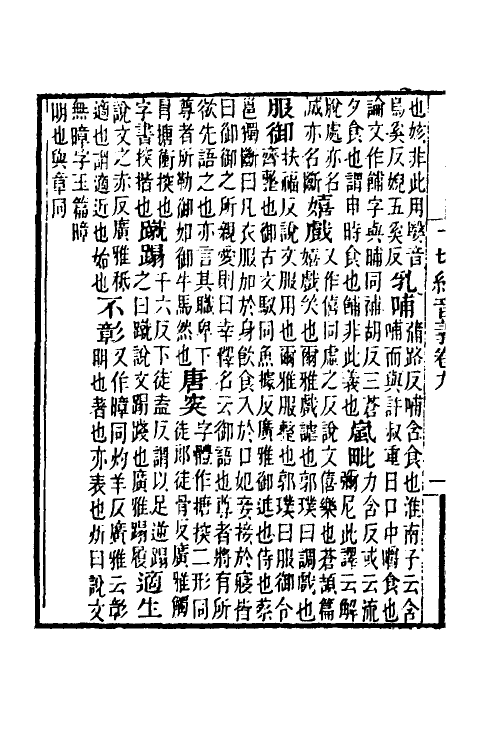 也㛄非此用㛄音
乳哺 蒲路反哺含食也淮南子云含
烏奚反婗五奚反哺而與許叔重曰口中嚼食也
論文作餔字與晡同補胡反三蒼
夕食也謂申時食也餔非此義也
嵐毗 力含反或云流
彌尼此譯云解
脫處亦名
滅亦名斷
嬉戲 又作僖同虛之反說文僖樂也蒼頡篇
嬉戲笑也爾雅戲謔也郭璞曰調戲也
服御 扶福反說文服用也爾雅服整也郭璞曰服御令
齊整也御古文馭同魚據反廣雅御進也侍也蔡
邕獨斷曰凡衣服加於身飲食入於口妃妾接於寢皆
曰御御之所親愛則曰幸釋名云御語也尊者將有所
欲先語之也亦言其職卑下
尊者所勒御如御牛馬然也
唐突 字體作搪揬二形同
徒郎徒骨反廣雅觸
冒搪衝揬也
字書揬揩也
蹴蹋 千六反下徒盍反謂以足逆蹋
之曰蹴說文蹋踐也廣雅蹋履
適生
說文之亦反廣雅秪
適也謂適近也始也
不彰 又作暲同灼羊反廣雅云彰
明也著也亦表也炤曰說文
無暲字玉篇暲
明也與章同
一切經音義卷九